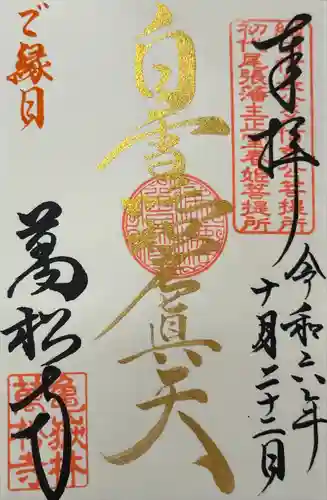 奉拝
初代尾張藩主正室春姫菩提所
令和六年
十月二十二日
白雪眞天
ご縁日
萬松寺
亀嶽林
萬松寺